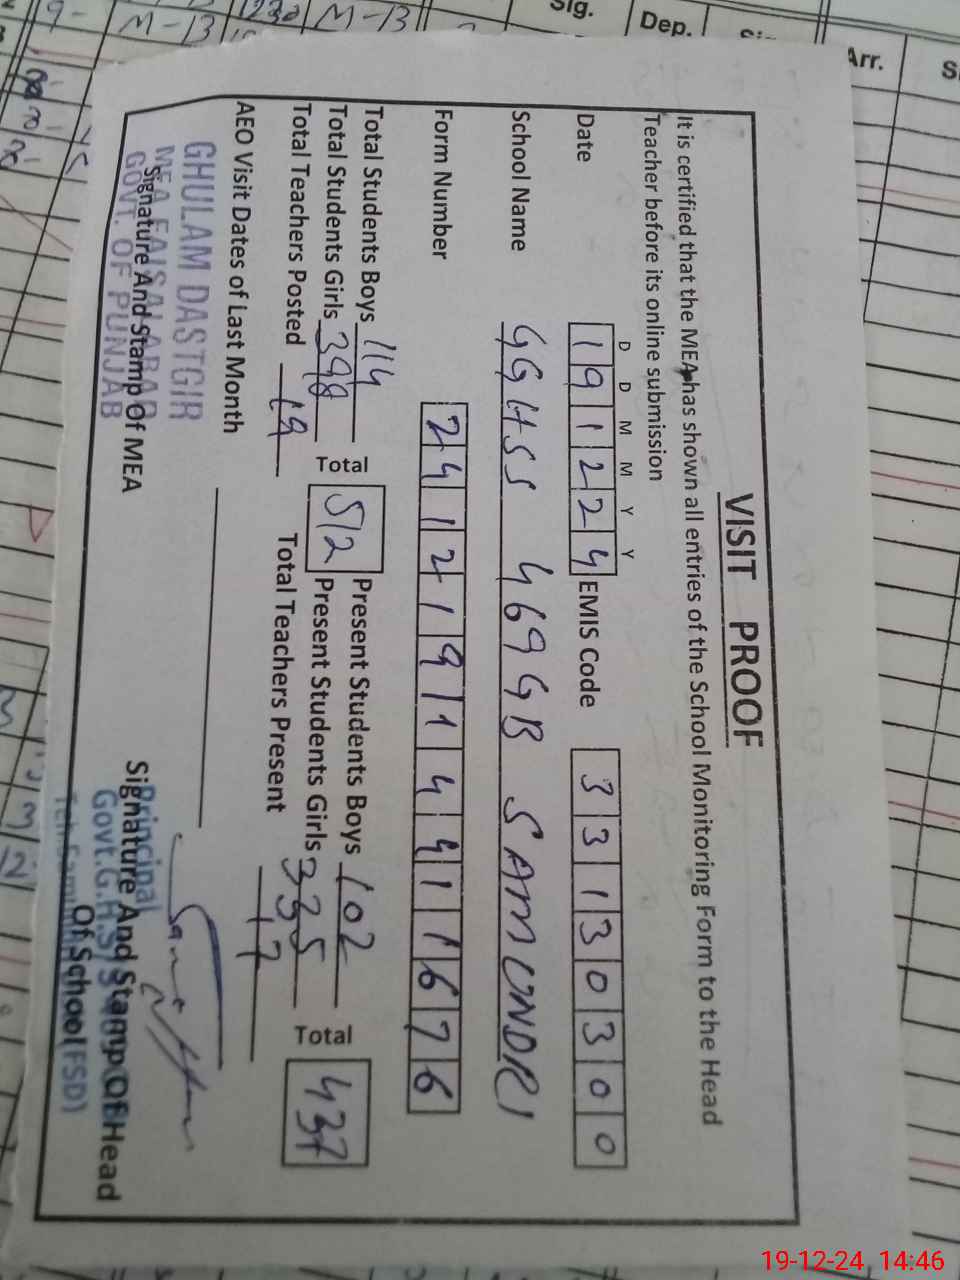 VISIT PROOF
It is certified that the MEA has shown all entries of the School Monitoring Form to the Head
Teacher before its online submission
D D M M Y Y
Date 1 9 1 2 2 4 EMIS Code 3 3 1 3 0 3 0 0
School Name GGHSS 469GB SAMUNDRI
Form Number 2 4 1 2 1 9 1 4 4 1 1 6 7 6
Total Students Boys 114 Present Students Boys 102
Total Students Girls 398 Total 512 Present Students Girls 335 Total 437
Total Teachers Posted 19 Total Teachers Present 17
AEO Visit Dates of Last Month
GHULAM DASTGIR
MEA FAISALABAD
GOVT. OF PUNJAB
Signature And Stamp Of MEA
Principal
Govt.G.H.S
Signature And Stamp Of Head
Of School
(FSD)
Sig.
Dep.
Arr.
M-13
1230
M-13
19-12-24, 14:46